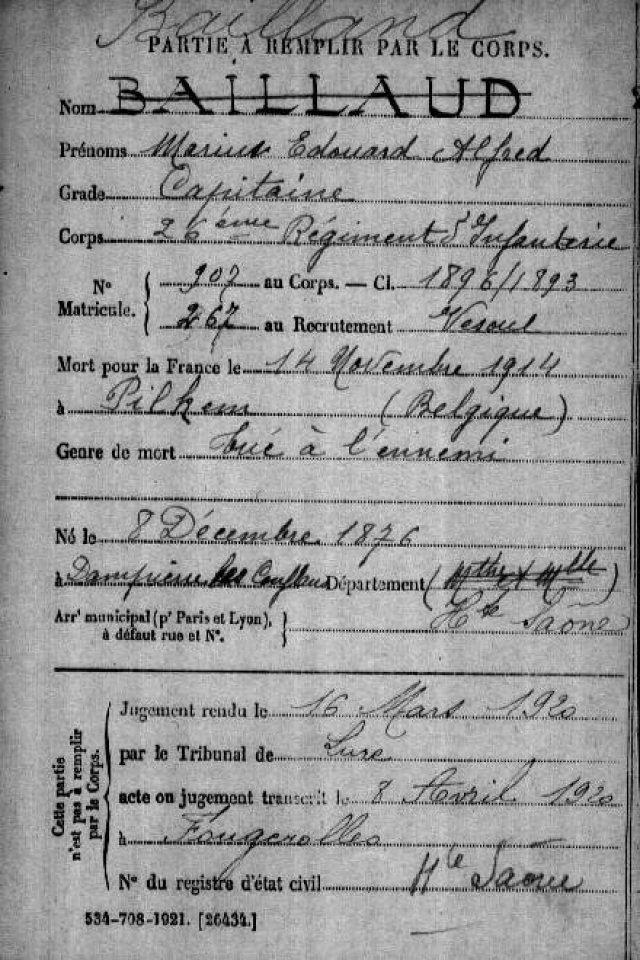 Bailland
PARTIE À REMPLIR PAR LE CORPS.
Nom BAILLAUD
Prénoms Marius Edouard Alfred
Grade Capitaine
Corps 26ème Régiment d'Infanterie
N° Matricule. 907 au Corps. — Cl. 1896/1893
267 au Recrutement Vesoul
Mort pour la France le 14 Novembre 1914
à Pilkem (Belgique)
Genre de mort tué à l'ennemi
Né le 8 Décembre 1876
à Dampierre les Conflans Département (Mthe & Mlle)
Arrt municipal (pr Paris et Lyon), à défaut rue et N°. Hte Saône
Cette partie n'est pas à remplir par le Corps.
Jugement rendu le 16 Mars 1920
par le Tribunal de Lure
acte ou jugement transcrit le 8 Avril 1920
à Fougerolles
N° du registre d'état civil Hte Saône
534-708-1921. [26434.]